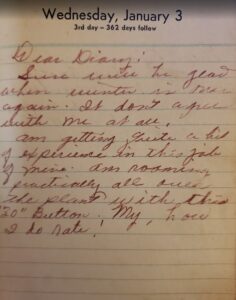 Wednesday, January 3
3rd day – 362 days follow
Dear Diary:
Sure will be glad
when winter is over
again. It don't agree
with me at all.
Am getting quite a bit
of experience in this job
of mine. Am roaming
practically all over
the plant with this
"30" Button. My, how
I do rate!